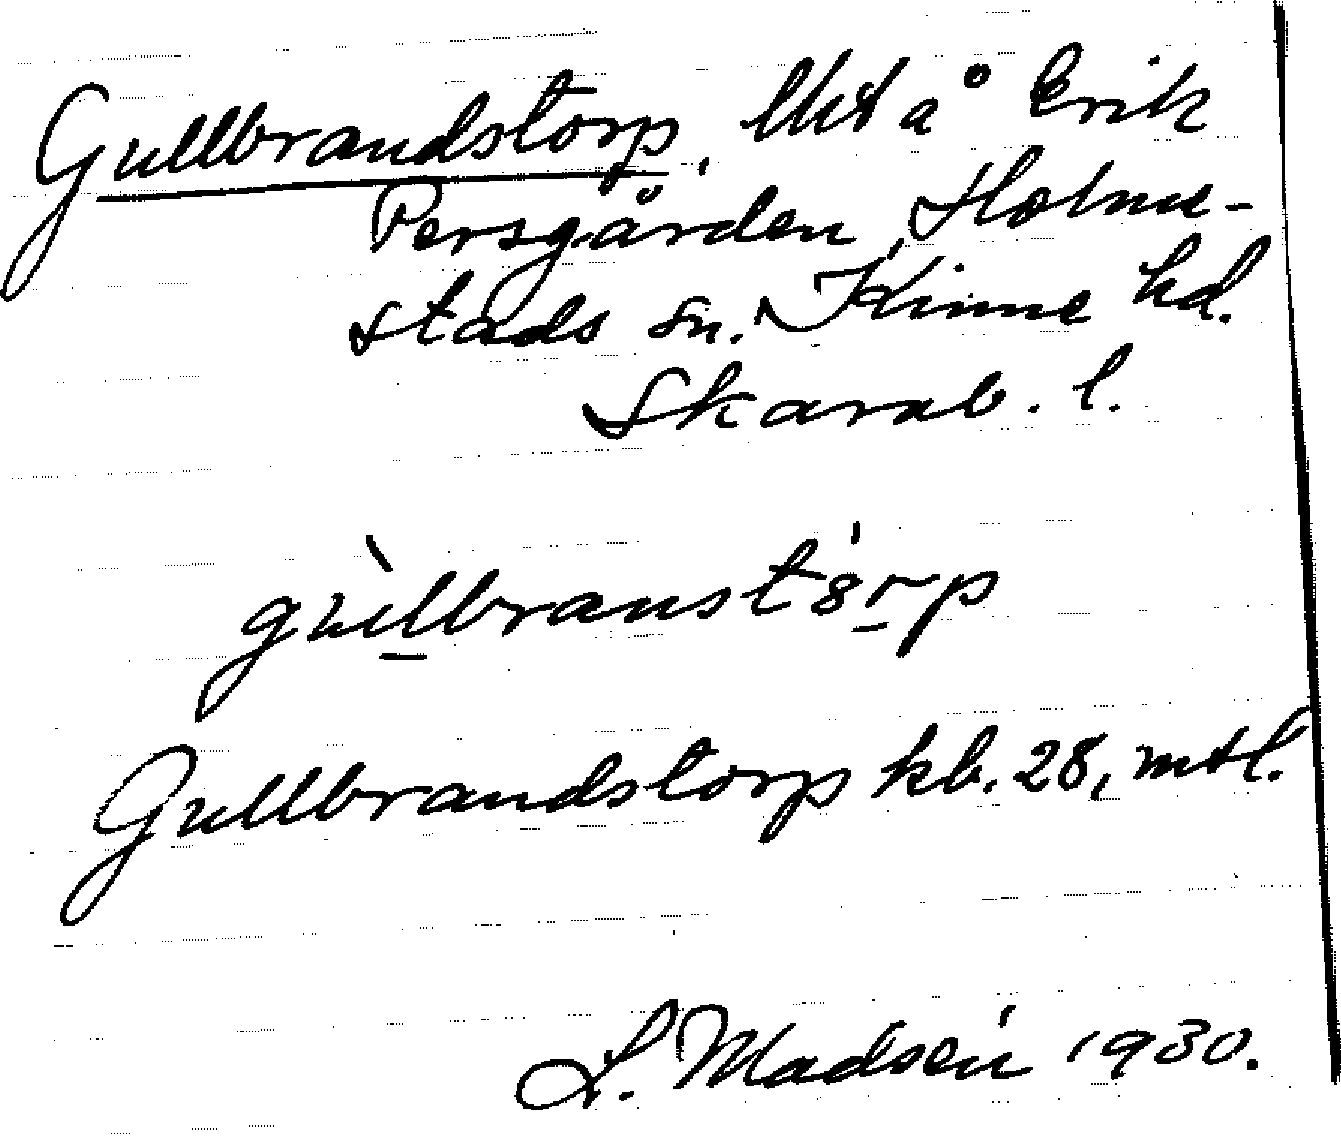 Gullbrandstorp, lht å Erik
Persgården, Holme-
stads sn. Kinne hd.
Skarab. l.
gùllbranstórp
Gullbrandstorp kb. 28, mtl.
L. Madsén 1930.